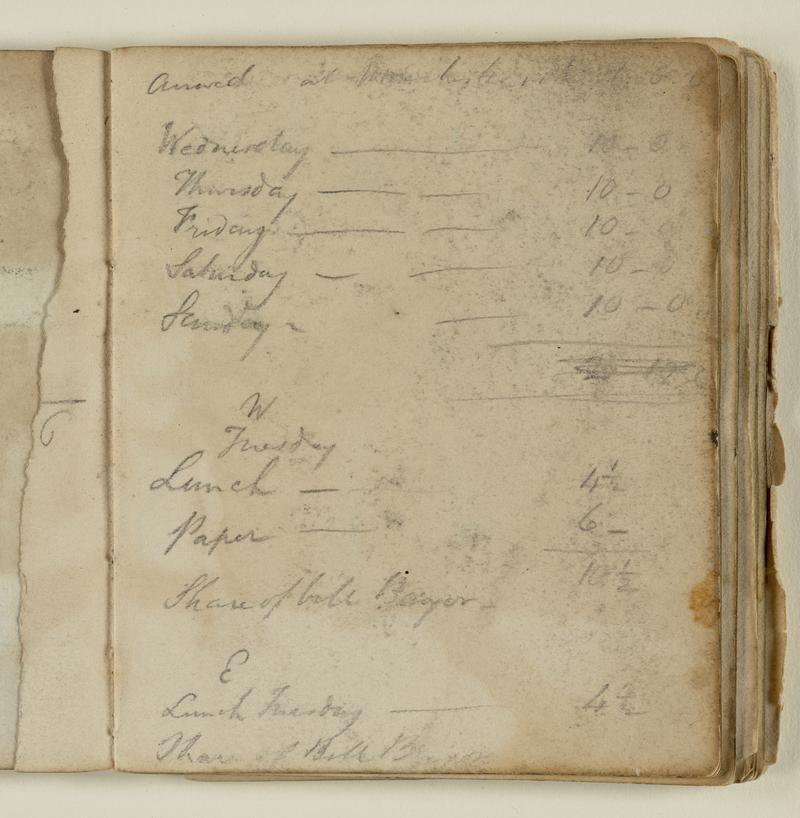 arrived at
Wednesday — 10 - 0
Thursday — — 10 - 0
Friday — — 10 - 0
Saturday — — 10 - 0
Sunday - — 10 - 0
W
Tuesday
Lunch — 4½
Paper — 6 -
10½
Share of bill Bangor -
E
Lunch Tuesday — 4½
Share of Bill Bangor